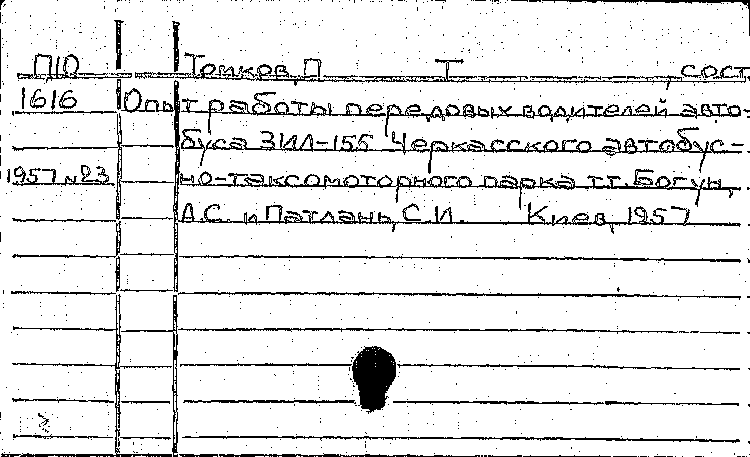 П10 Томков, П Т , сост
1616 Опыт работы передовых водителей авто-
буса ЗИЛ-155 Черкасского автобус-
1957 №23 но-таксомоторного парка тт. Богун,
А.С. и Патлань, С.И. Киев, 1957